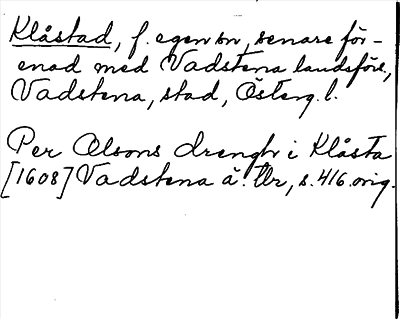 Klåstad, f. egen sn, senare för-
enad med Vadstena landsförs.,
Vadstena, stad, Österg. l.
Per Olsons drengh i Klåsta
[1608] Vadstena ä. Ur, s. 416. orig.